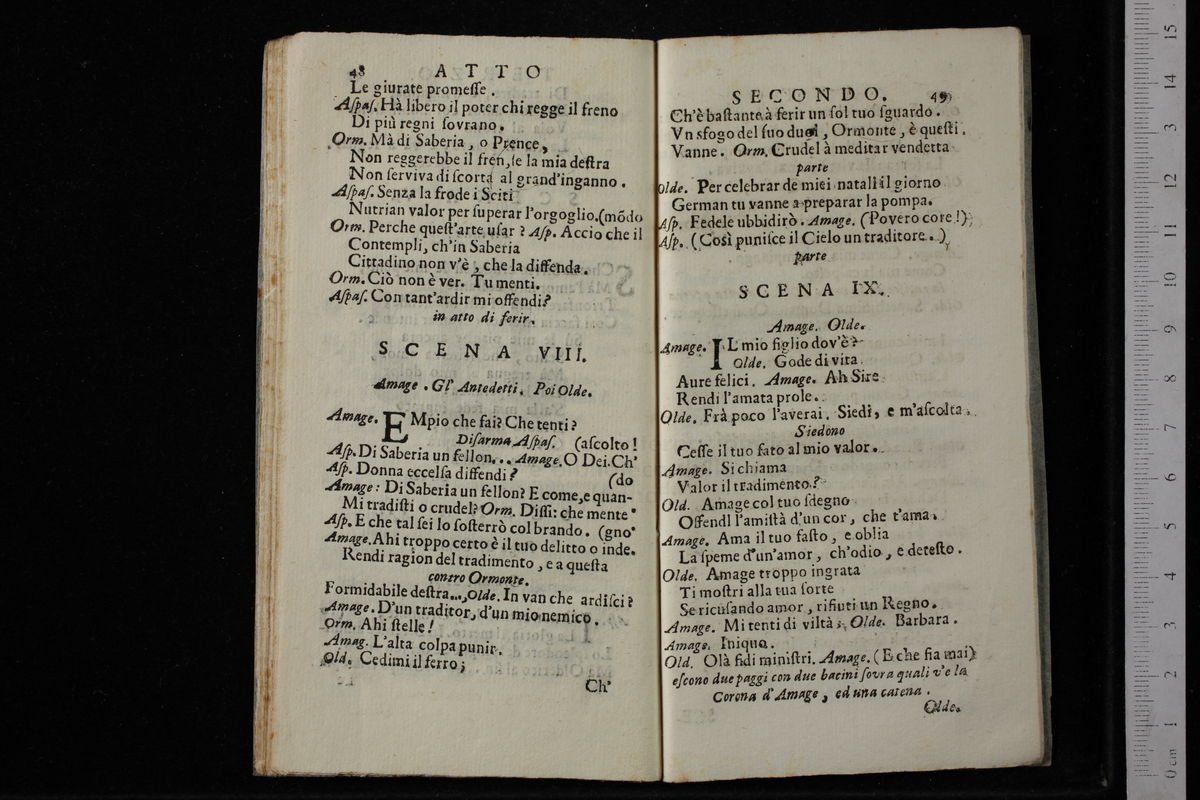 48 ATTO
Le giurate promeſſe.
Aſpaſ. Hà libero il poter chi regge il freno
Di più regni ſovrano.
Orm. Mà di Saberia, o Prence,
Non reggerebbe il fren, ſe la mia deſtra
Non ſerviva di ſcorta al grand'inganno.
Aſpaſ. Senza la frode i Sciti
Nutrian valor per ſuperar l'orgoglio. (mõdo
Orm. Perche queſt'arte uſar? Aſp. Accio che il
Contempli, ch'in Saberia
Cittadino non v'è, che la diffenda.
Orm. Ciò non è ver. Tu menti.
Aſpaſ. Con tant'ardir mi offendi?
in atto di ferir.
SCENA VIII.
Amage. Gl' Antedetti. Poi Olde.
Amage. EMpio che fai? Che tenti?
Diſarma Aſpaſ. (aſcolto!
Aſp. Di Saberia un fellon... Amage. O Dei. Ch'
Aſp. Donna eccelſa diffendi? (do
Amage: Di Saberia un fellon? E come, e quan-
Mi tradiſti o crudel? Orm. Diſſi: che mente
Aſp. E che tal ſei lo ſoſterrò col brando. (gno
Amage. Ahi troppo certo è il tuo delitto o inde.
Rendi ragion del tradimento, e a queſta
contro Ormonte.
Formidabile deſtra..., Olde. In van che ardiſci?
Amage. D'un traditor, d'un mio nemico.
Orm. Ahi ſtelle!
Amag. L'alta colpa punir.
Old. Cedimi il ferro;
Ch'
SECONDO. 49
Ch'è baſtante à ferir un ſol tuo ſguardo.
Vn sfogo del ſuo duol, Ormonte, è queſti.
Vanne. Orm. Crudel à meditar vendetta
parte
Olde. Per celebrar de miei natali il giorno
German tu vanne a preparar la pompa.
Aſp. Fedele ubbidirò. Amage. (Povero core!)
Aſp. (Così puniſce il Cielo un traditore.)
parte
SCENA IX.
Amage. Olde.
Amage. IL mio figlio dov'è?
Olde. Gode di vita
Aure felici. Amage. Ah Sire
Rendi l'amata prole.
Olde. Frà poco l'averai. Siedi, e m'aſcolta.
Siedono
Ceſſe il tuo fato al mio valor.
Amage. Si chiama
Valor il tradimento?
Old. Amage col tuo ſdegno
Offendi l'amiſtà d'un cor, che t'ama.
Amage. Ama il tuo faſto, e oblia
La ſpeme d'un'amor, ch'odio, e deteſto.
Olde. Amage troppo ingrata
Ti moſtri alla tua ſorte
Se ricuſando amor, rifiuti un Regno.
Amage. Mi tenti di viltà; Olde. Barbara.
Amage. Iniquo.
Old. Olà fidi miniſtri. Amage. (E che fia mai)
eſcono due paggi con due bacini ſovra quali v'e la
Corona d'Amage, ed una catena.
Olde.
0 cm 1 2 3 4 5 6 7 8 9 10 11 12 13 14 15